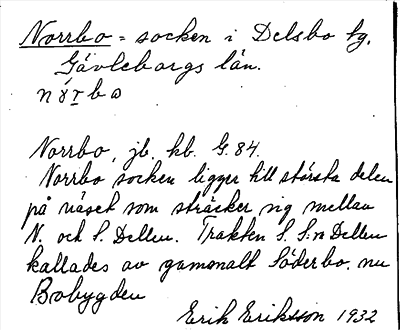 Norrbo = socken i Delsbo tg,
Gävleborgs län.
Norrbo, jb. kb. G. 84.
Norrbo socken ligger till största delen
på näset som sträcker sig mellan
N. och S. Dellen. Trakten S. S:a Dellen
kallades av gammalt Söderbo, nu
Bobygden
Erik Eriksson 1932